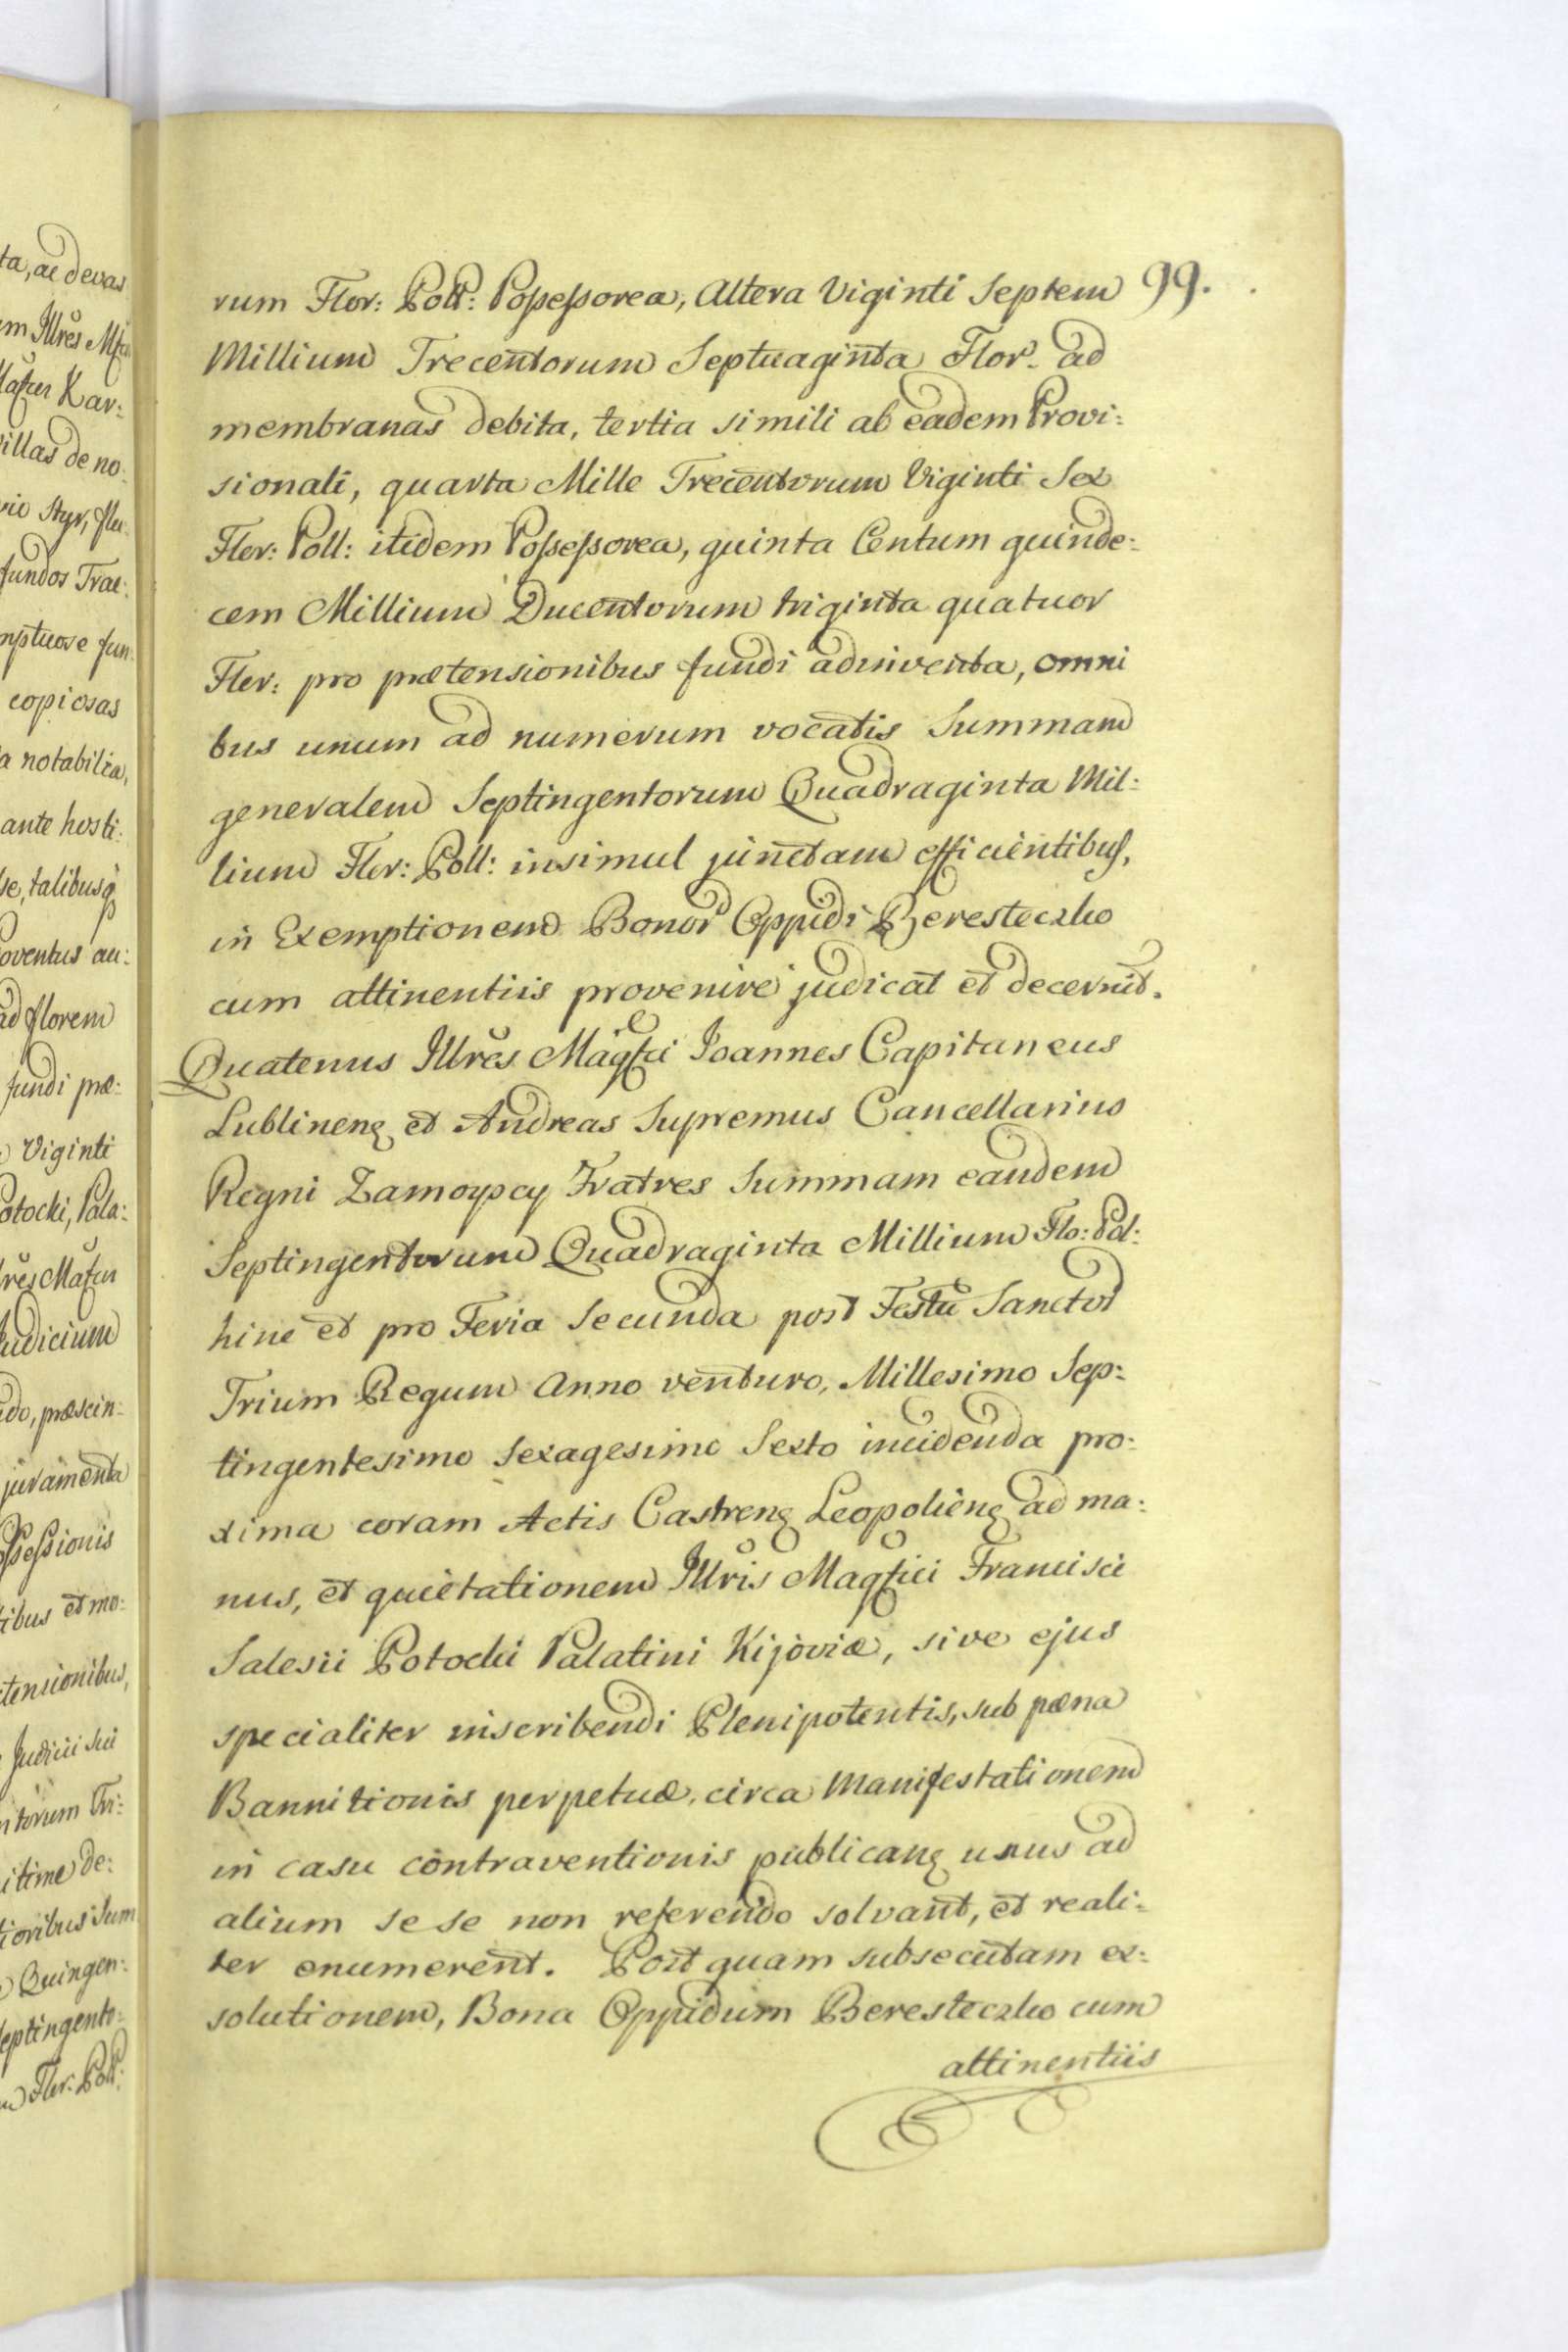 ta, ac devas
em Illres Mfcu
Kar:
villas de no:
vio Styr, flu:
fundos Trac:
mptuose fun:
copiosas
a notabilia,
ante hosti:
se, talibusq
oventus au:
ad florem
fundi præ:
Viginti
Potocki, Pala:
Judicium
do, præscin:
juramenta
ossessionis
tibus et mo:
tensionibus,
Judicii sui
itime de:
tioribus Sum
Quingen:
Septingento:
Flor: Poll:
99.
rum Flor: Poll: Possessorea, Altera Viginti Septem
Millium Trecentorum Septuaginta Flor. ad
membranas debita, tertia simili ab eadem Provi:
sionali, quarta Mille Trecentorum Viginti Sex
Flor: Poll: itidem Possessorea, quinta Centum quinde:
cem Millium Ducentorum triginta quatuor
Flor: pro prætensionibus fundi adinventa, omni
bus unum ad numerum vocatis Summam
generalem Septingentorum Quadraginta Mil:
lium Flor: Poll: insimul junctam efficientibus,
in Exemptionem Bonor Oppidi Beresteczko
cum attinentiis provenire judicat et decernit.
Quatenus Illres Magfci Joannes Capitaneus
Lublinen et Andreas Supremus Cancellarius
Regni Zamoyscy Fratres Summam eandem
Septingentorum Quadraginta Millium Flo: Pol:
hinc et pro Feria Secunda post Festu Sanctor
Trium Regum Anno venturo, Millesimo Sep:
tingentesimo Sexagesimo Sexto incidenda pro:
xima coram Actis Castren Leopolien ad ma:
nus, et quietationem Illris Magfici Francisci
Salesii Potocki Palatini Kijoviæ, sive ejus
specialiter inscribendi Plenipotentis, sub pœna
Bannitionis perpetuæ, circa Manifestationem
in casu contraventionis publican unus ad
alium sese non referendo solvant, et reali:
ter enumerent. Post quam subsecutam ex:
solutionem, Bona Oppidum Beresteczko cum
attinentiis